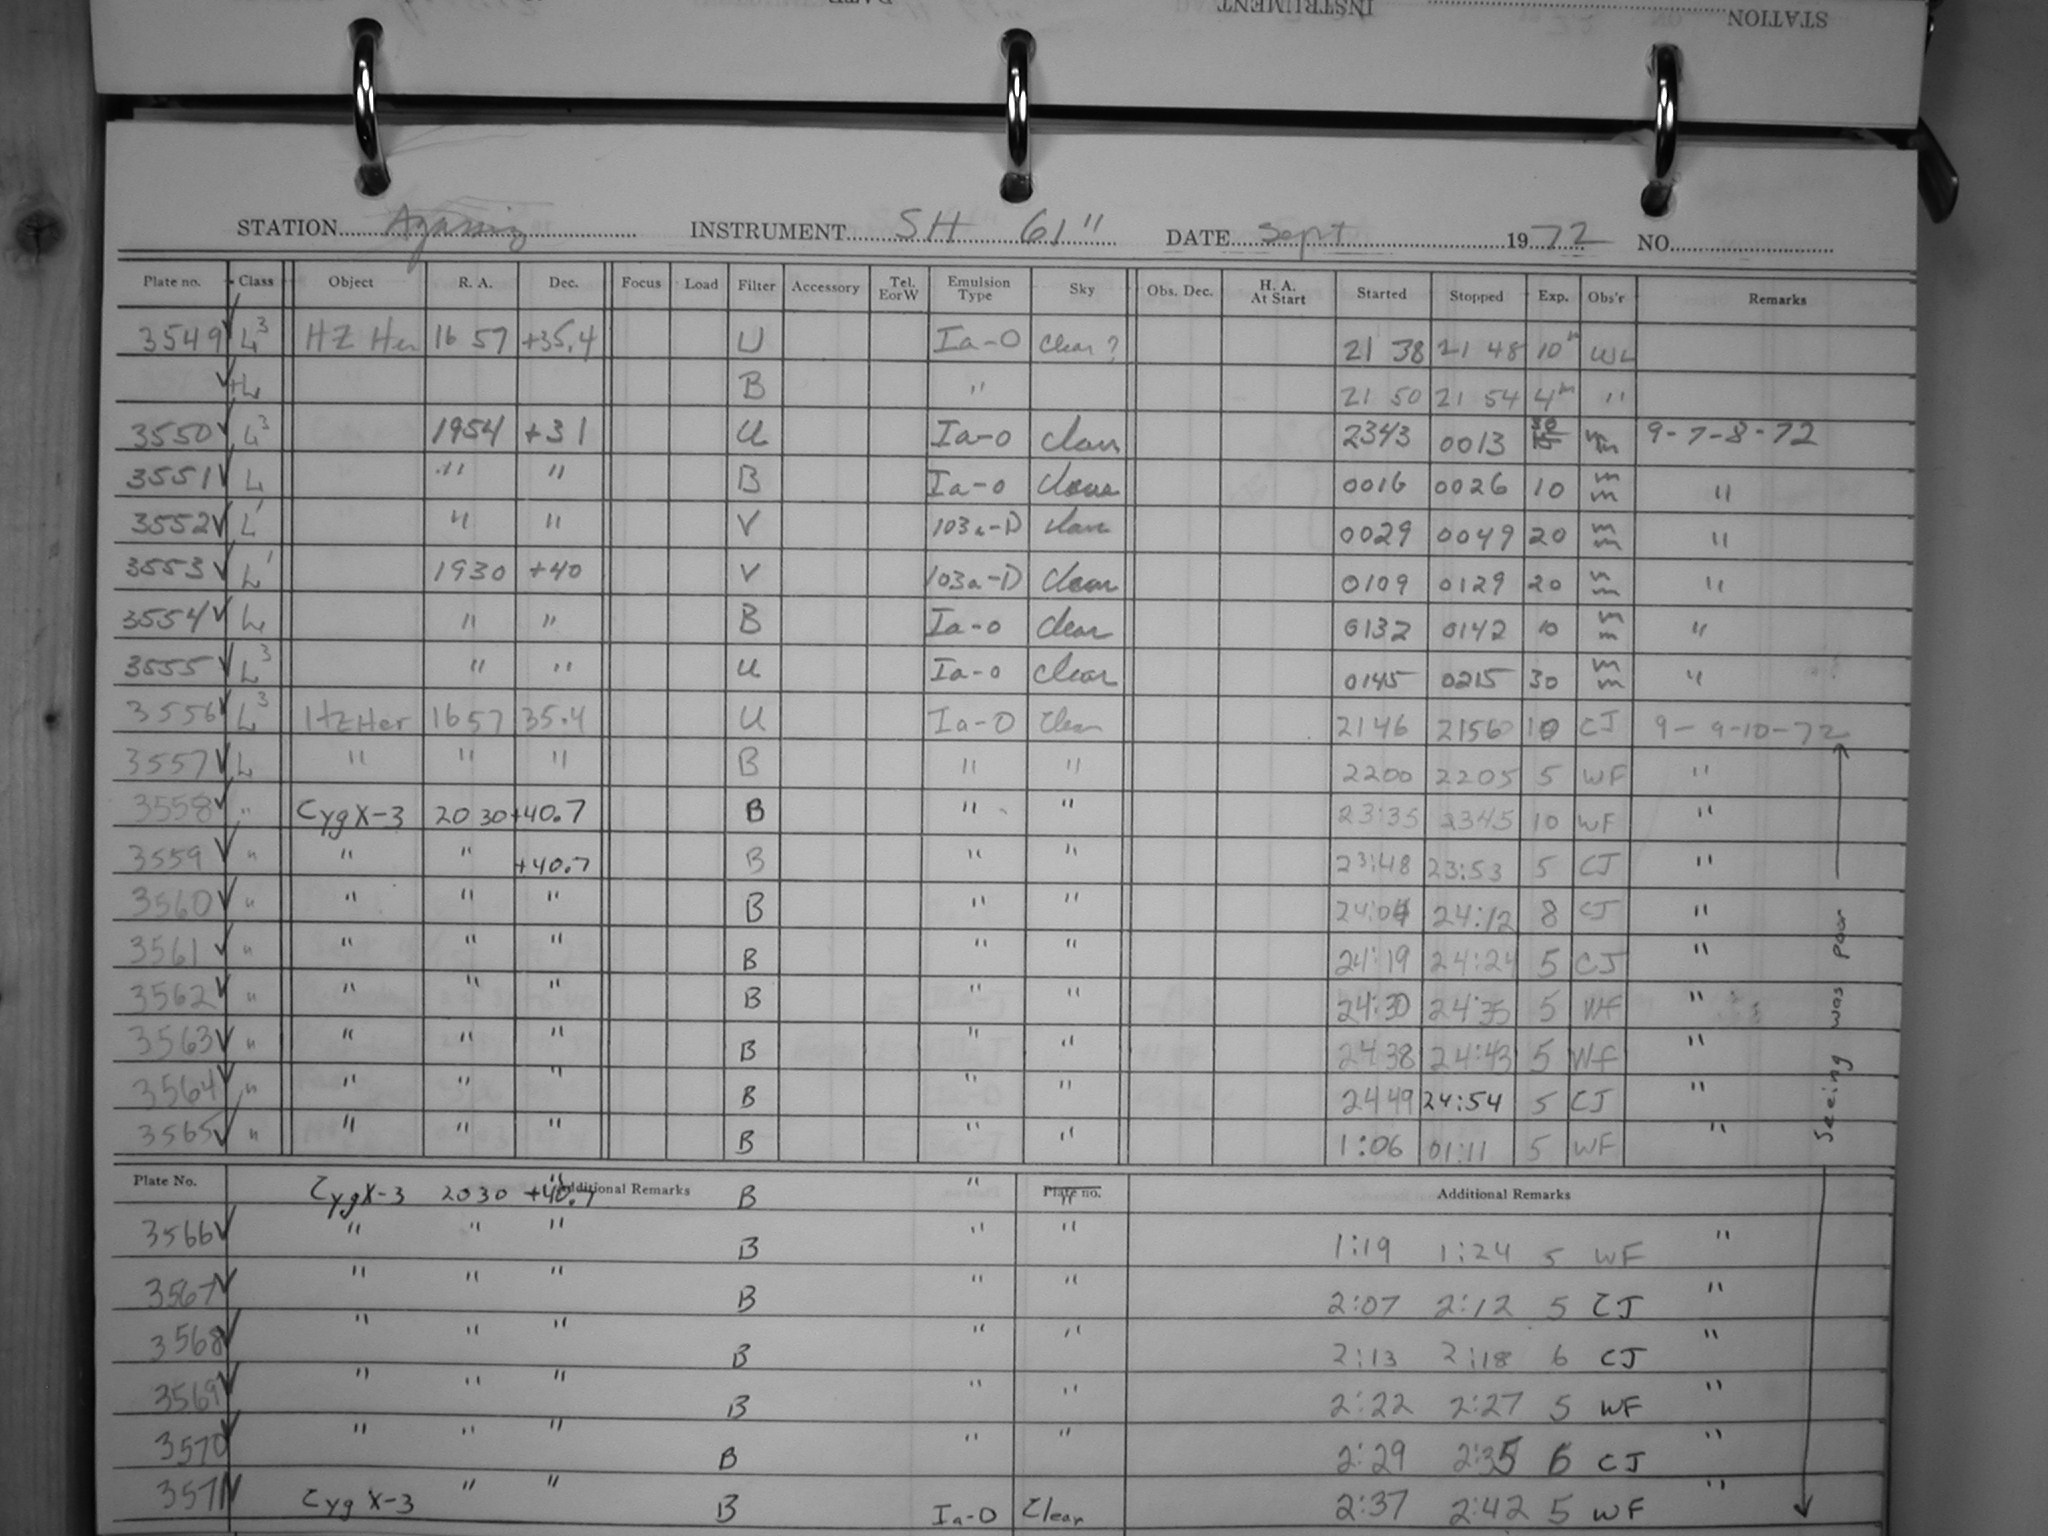 STATION INSTRUMENT
STATION Agassiz INSTRUMENT SH 61" DATE Sept 1972 NO.
Plate no. Class Object R. A. Dec. Focus Load Filter Accessory Tel. EorW Emulsion Type Sky Obs. Dec. H. A. At Start Started Stopped Exp. Obs'r Remarks
3549 L3 HZ Her 16 57 +35.4 U Ia-O clear? 21 38 21 48 10m WL
+L B " 21 50 21 54 4m "
3550 L3 1954 +31 U Ia-o clear 2343 0013 30 9-7-8-72
3551 L " " B Ia-o clear 0016 0026 10 "
3552 L' " " V 103a-D clear 0029 0049 20 "
3553 L' 1930 +40 V 103a-D clear 0109 0129 20 "
3554 L " " B Ia-o clear 0132 0142 10 "
3555 L3 " " U Ia-o clear 0145 0215 30 "
3556 L3 HZ Her 16 57 35.4 U Ia-O clear 2146 2156 10 CJ 9-9-10-72
3557 L " " " B " " 2200 2205 5 WF "
3558 " Cyg X-3 20 30 +40.7 B " " 23:35 2345 10 WF "
3559 " " " +40.7 B " " 23:48 23:53 5 CJ "
3560 " " " " B " " 24:04 24:12 8 CJ "
3561 " " " " B " " 24:19 24:24 5 CJ "
3562 " " " " B " " 24:30 24:35 5 WF "
3563 " " " " B " " 24 38 24:43 5 WF "
3564 " " " " B " " 24 49 24:54 5 CJ "
3565 " " " " B " " 1:06 01:11 5 WF "
Seeing was poor
Plate No. Additional Remarks Plate no. Additional Remarks
Cyg X-3 20 30 +40.7 B " "
3566 " " " B " " 1:19 1:24 5 WF "
3567 " " " B " " 2:07 2:12 5 CJ "
3568 " " " B " " 2:13 2:18 6 CJ "
3569 " " " B " " 2:22 2:27 5 WF "
3570 " " " B " " 2:29 2:35 6 CJ "
3571 Cyg X-3 " " B Ia-O Clear 2:37 2:42 5 WF "